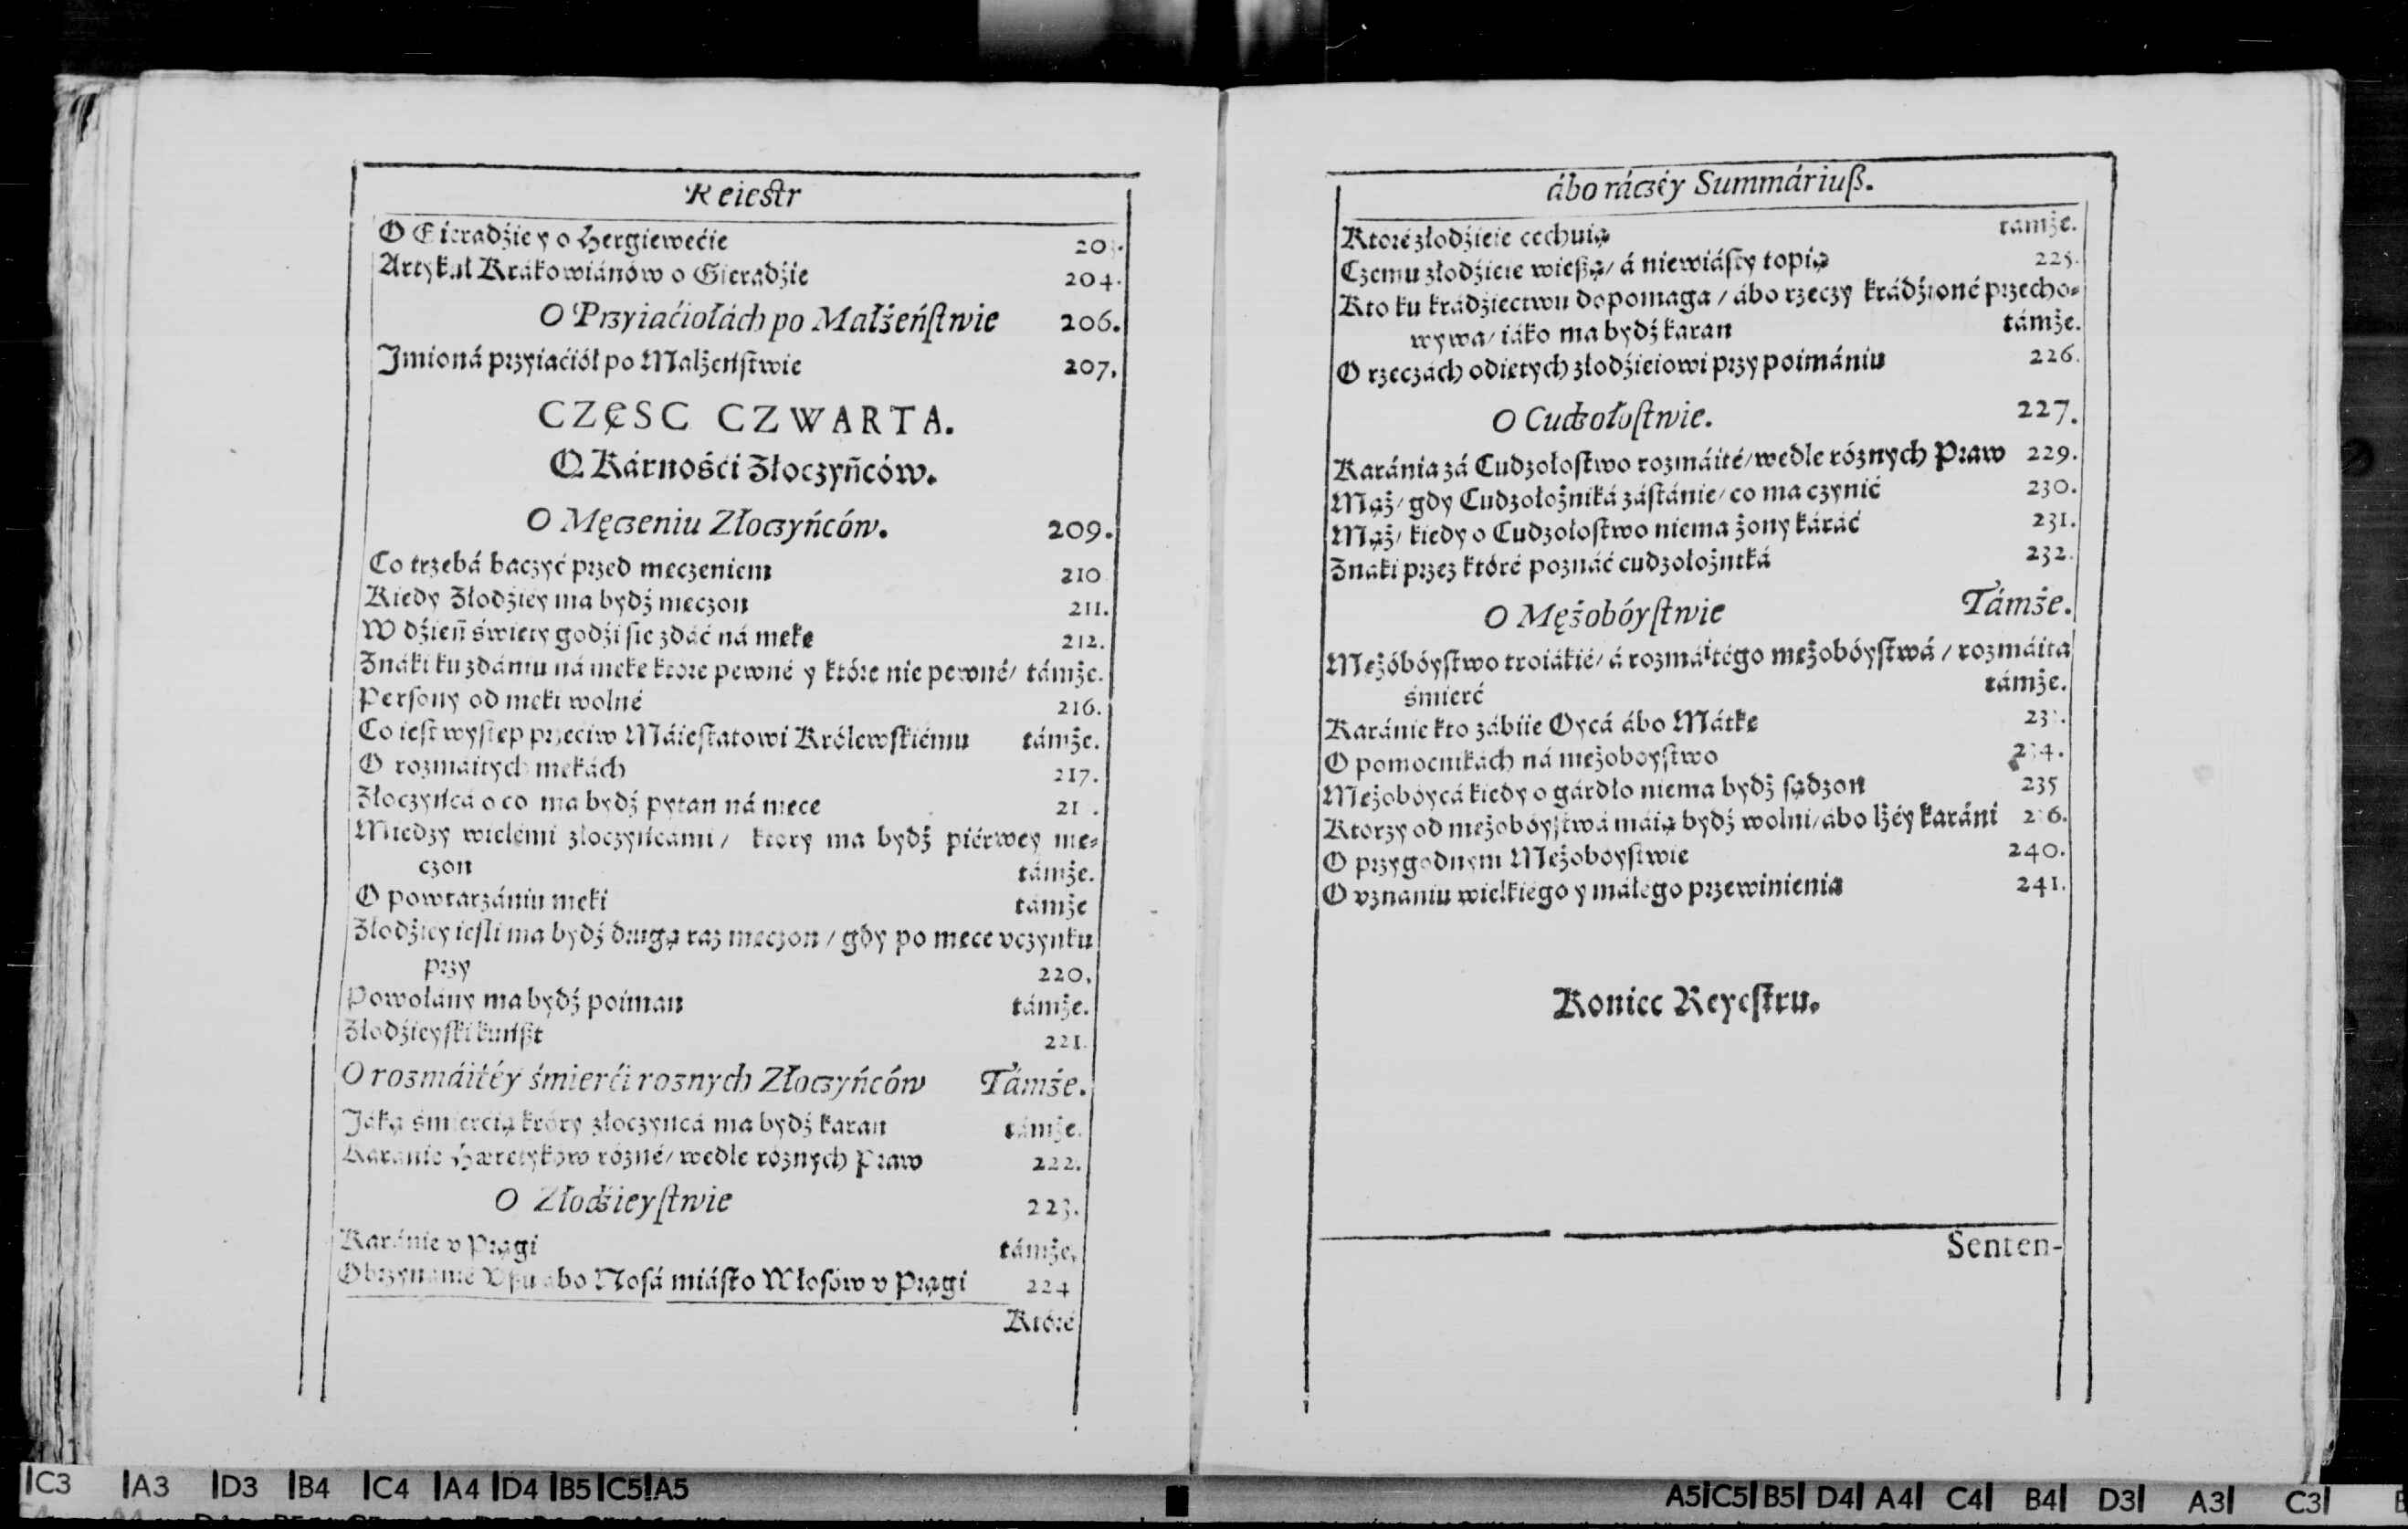 Reiestr
O Gieradźie y o Hergiewećie 203.
Artykuł Krákowiánów o Gieradźie 204.
O Przyiaćiołách po Małżeńſtwie 206.
Jmioná przyiaćiół po Malżeńſtwie 207.
CZĘSC CZWARTA.
O Kárnośći Złoczyńców.
O Męczeniu Złoczyńców. 209.
Co trzebá baczyć przed meczeniem 210
Kiedy Złodźiey ma bydź meczon 211.
W dźień świety godźi ſie zdáć ná meke 212.
Znáki ku zdániu ná meke ktore pewné y które nie pewné/ támże.
Perſony od meki wolné 216.
Co ieſt wyſtep przeciw Máieſtatowi Królewſkiému támże.
O rozmáitych mekách 217.
Złoczyńcá o co ma bydź pytan ná mece 21 .
Miedzy wielémi złoczyńcami/ ktory ma bydź piérwey me⸗
czon támże.
O powtarzániu meki támże
Złodźiey ieſli ma bydź drugą raz meczon/ gdy po mece vczynku
przy 220.
Powołány ma bydź poiman támże.
Złodźieyſki kunßt 221.
O rozmáitéy śmierći roznych Złoczyńców Támże.
Jáką śmiercią który złoczyńcá ma bydź karan támże.
Karánie Hæretykow rózné/ wedle róznych Praw 222.
O Złodźieyſtwie 223.
Karánie v Prągi támże.
Obrzynanie Vßu abo Noſá miáſto Włoſów v Prągi 224
Któré
ábo ráczéy Summáriuß.
Ktoré złodźieie cechuią tamże.
Czemu złodźieie wießą/ á niewiáſty topią 225.
Kto ku krádźiectwu dopomaga/ ábo rzeczy krádźioné przecho⸗
wywa/ iáko ma bydź karan támże.
O rzeczách odietych złodźieiowi przy poimániu 226.
O Cudzołoſtwie. 227.
Karánia zá Cudzołoſtwo rozmáité/ wedle róznych Praw 229.
Mąż/ gdy Cudzołożniká záſtánie/ co ma czynić 230.
Mąż/ kiedy o Cudzołoſtwo niema żony káráć 231.
Znaki przez któré poznáć cudzołożniká 232.
O Mężobóyſtwie Támże.
Meżóbóyſtwo troiákié/ á rozmáitégo meżobóyſtwá/ rozmáita
śmierć támże.
Karánie kto zábiie Oycá ábo Mátke 23 .
O pomocnikách ná meżoboyſtwo 234.
Meżobóycá kiedy o gárdło niema bydź ſądzon 235
Ktorzy od meżobóyſtwá máią bydź wolni/ ábo lżéy karáni 236.
O przygodnym Meżoboyſtwie 240.
O vznaniu wielkiégo y máłégo przewinienia 241.
Koniec Reyeſtru.
Senten-
C3 A3 D3 B4 C4 A4 D4 B5 C5 A5
A5 C5 B5 D4 A4 C4 B4 D3 A3 C3